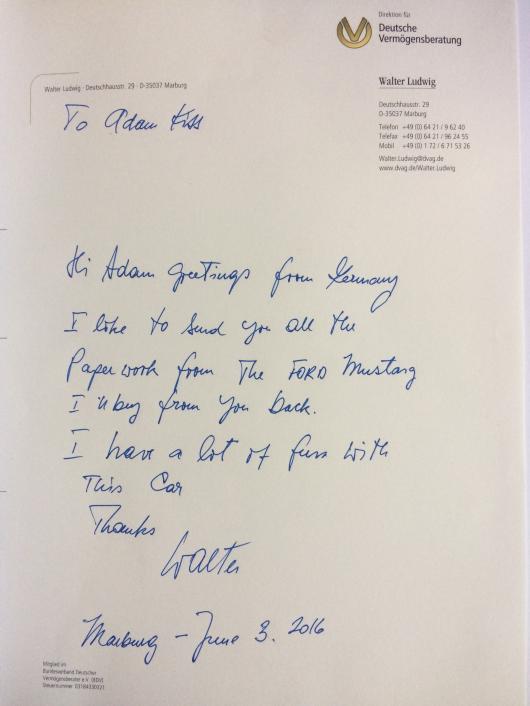 Direktion für
Deutsche
Vermögensberatung
Walter Ludwig
Deutschhausstr. 29
D-35037 Marburg
Telefon +49 (0) 64 21 / 9 62 40
Telefax +49 (0) 64 21 / 96 24 55
Mobil +49 (0) 1 72 / 6 71 53 26
Walter.Ludwig@dvag.de
www.dvag.de/Walter.Ludwig
Walter Ludwig · Deutschhausstr. 29 · D-35037 Marburg
To Adam Kiss
Hi Adam greetings from Germany
I like to send you all the
Paperwork from The FORD Mustang
I buy from you back.
I have a lot of fun with
This Car
Thanks
Walter
Marburg - June 3. 2016
Mitglied im
Bundesverband Deutscher
Vermögensberater e.V. (BDV)
Steuernummer 03184330321